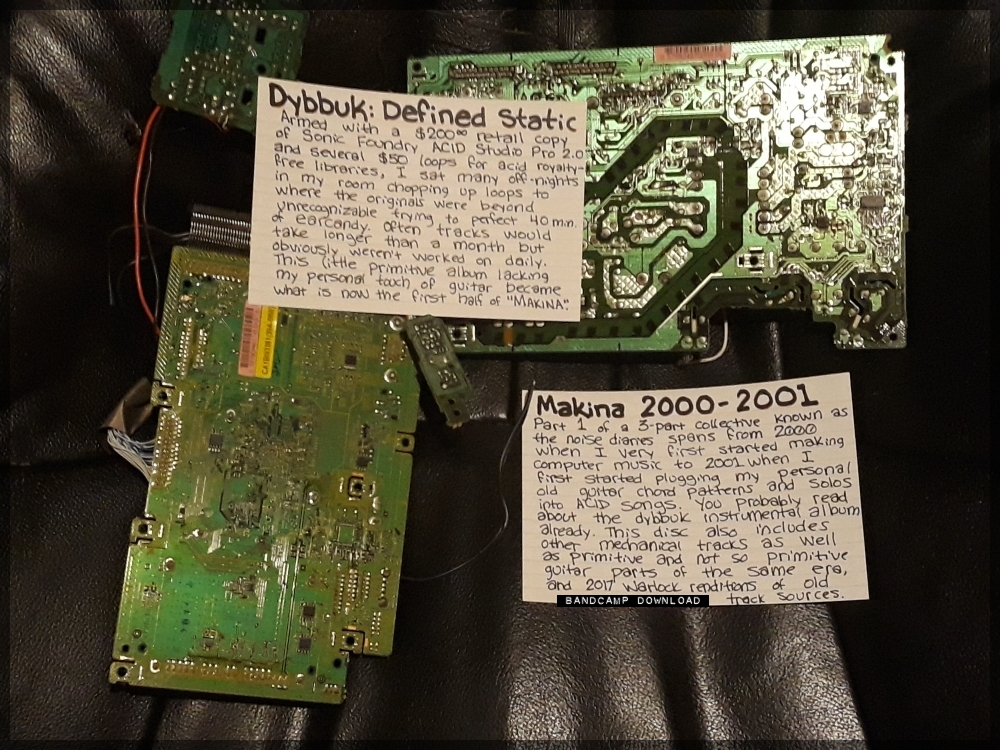 Dybbuk: Defined Static
Armed with a $200⁰⁰ retail copy
of Sonic Foundry ACID Studio Pro 2.0
and several $50 loops for acid royalty-
free libraries, I sat many off-nights
in my room chopping up loops to
where the originals were beyond
unrecognizable trying to perfect 40 min.
of earcandy. Often tracks would
take longer than a month but
obviously weren't worked on daily.
This little primitive album lacking
my personal touch of guitar became
what is now the first half of "MAKINA".
Makina 2000-2001
Part 1 of a 3-part collective known as
the noise diaries spans from 2000
when I very first started making
computer music to 2001 when I
first started plugging my personal
old guitar chord patterns and solos
into ACID songs. You probably read
about the dybbuk instrumental album
already. This disc also includes
other mechanical tracks as well
as primitive and not so primitive
guitar parts of the same era,
and 2017 Warlock renditions of old
track sources.
BANDCAMP DOWNLOAD